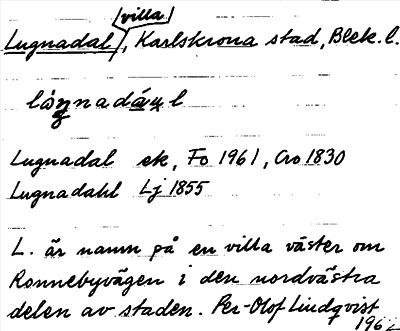 (villa)
Lugnadal, Karlskrona stad, Blek. l.
Lugnadal ek, Fo 1961, Cro 1830
Lugnadahl Lj 1855
L. är namn på en villa väster om
Ronnebyvägen i den nordvästra
delen av staden. Per-Olof Lindqvist